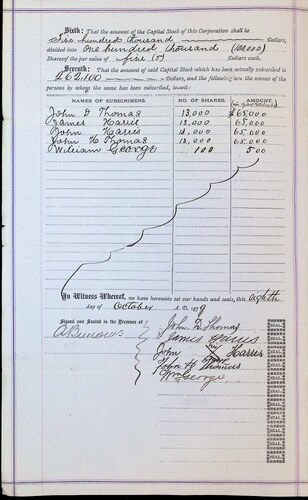 Sixth: That the amount of the Capital Stock of this Corporation shall be
five hundred thousand Dollars,
divided into One hundred thousand (100,000)
Shares of the par value of five (5) Dollars each.
Seventh: That the amount of said Capital Stock which has been actually subscribed is
262,100 Dollars, and the following are the names of the
persons by whom the same has been subscribed, to-wit:
NAMES OF SUBSCRIBERS. NO. OF SHARES. AMOUNT.
John D Thomas 13,000 $65,000
James Harris 13,000 65,000
John Harris 13,000 65,000
John H Thomas 13,000 65,000
William George 100 500
In Witness Whereof, we have hereunto set our hands and seals, this eighth
day of October A. D. 1879
Signed and Sealed in the Presence of
John D. Thomas SEAL.
James Harris SEAL.
John Harris SEAL.
John H Thomas SEAL.
Wm George SEAL.